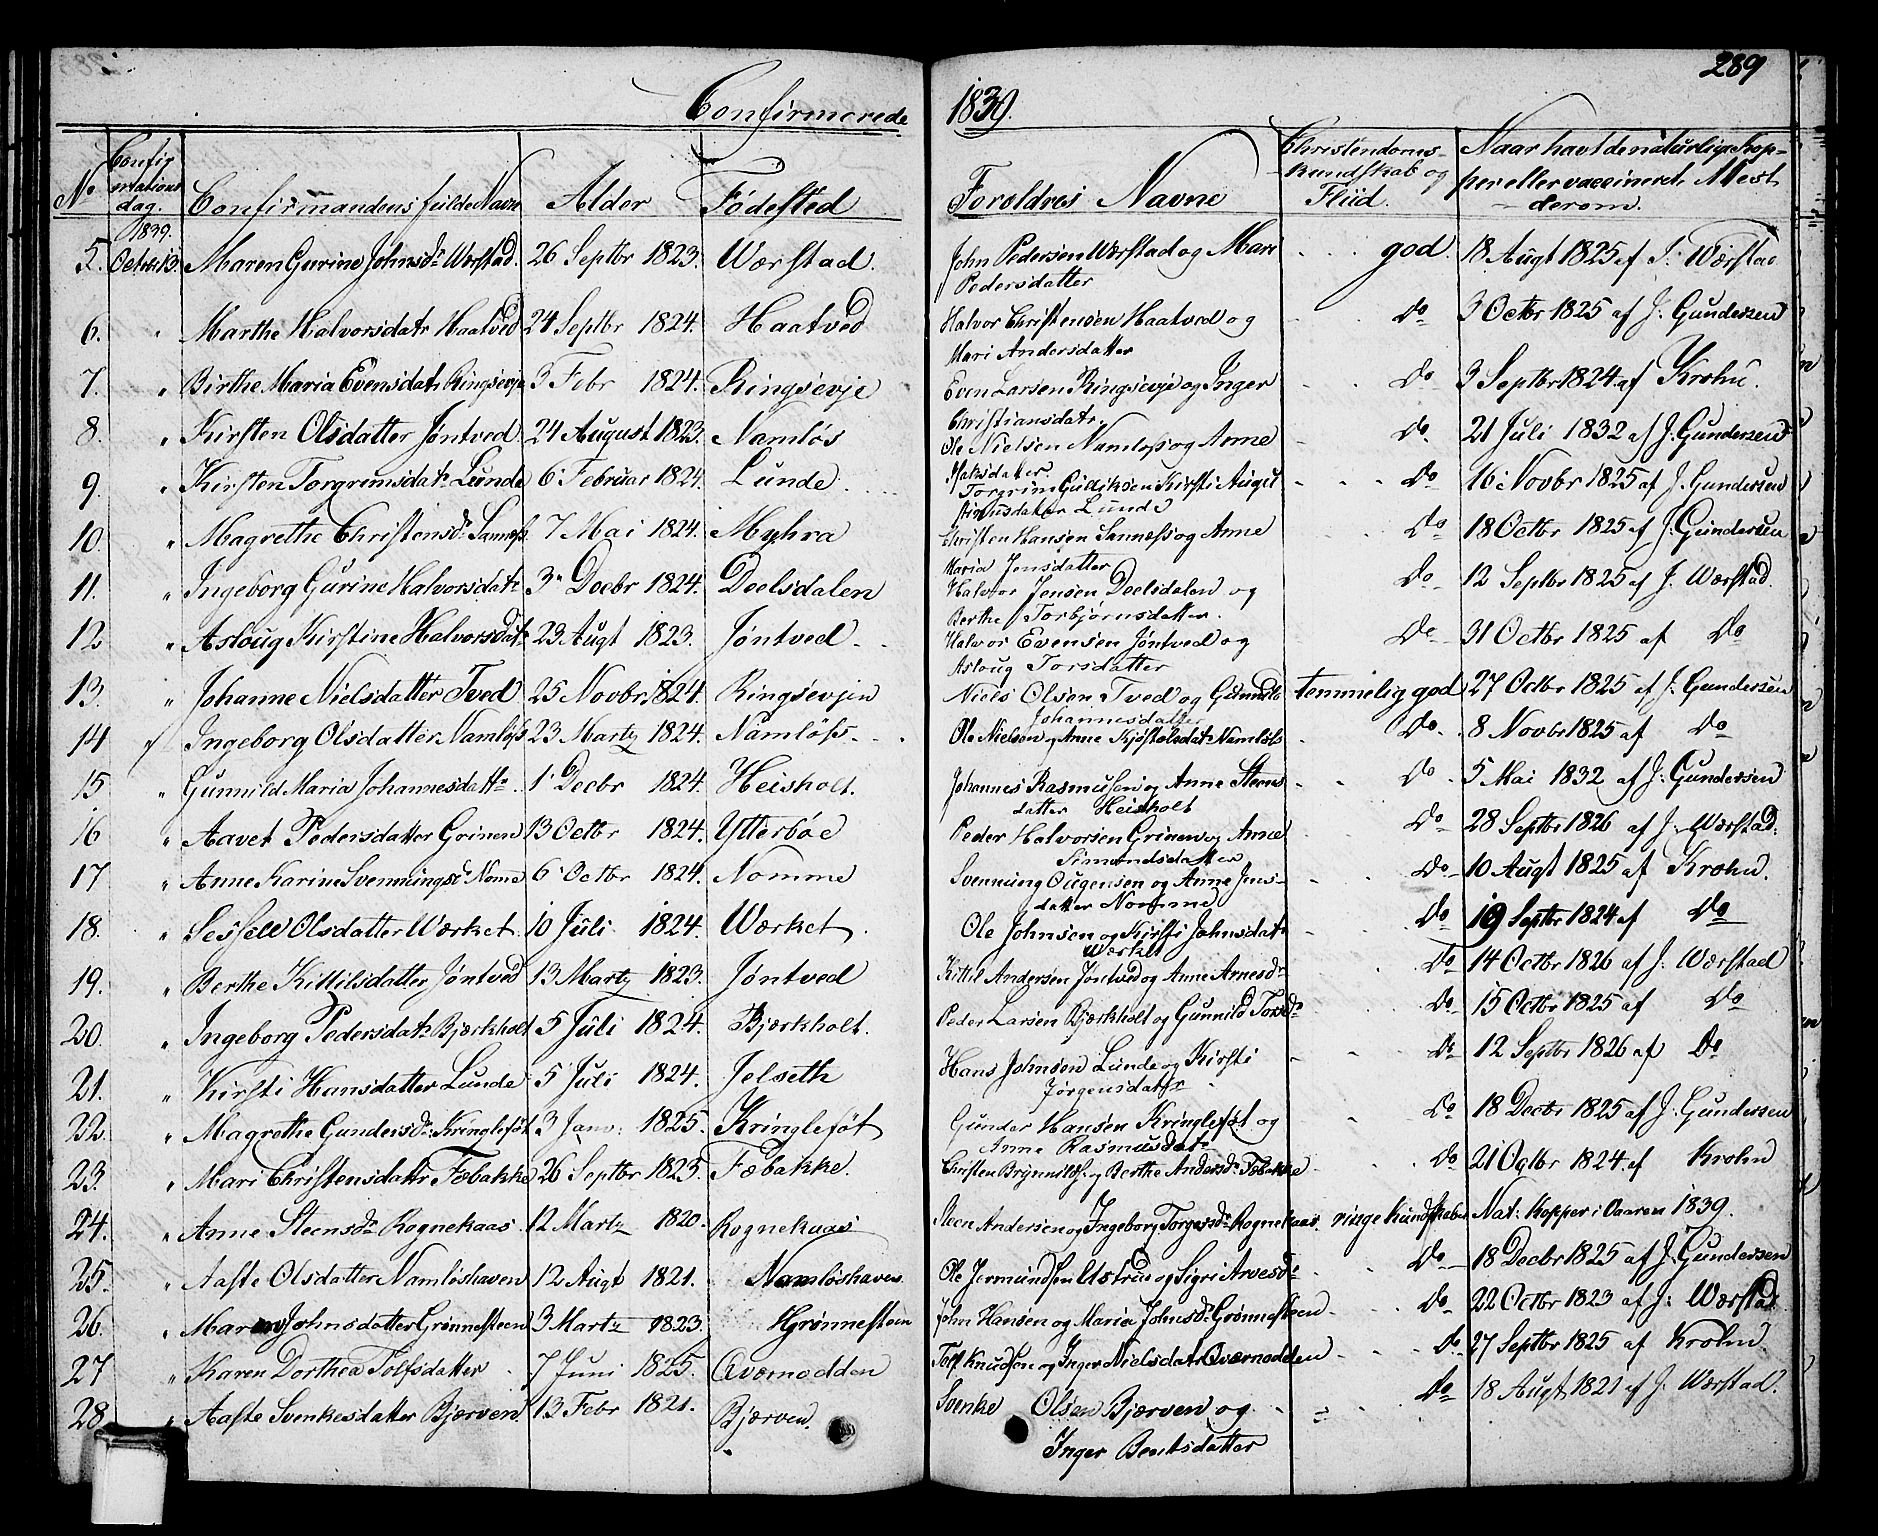 289
Confirmerede 1839.
No Confirmations dag. Confirmandens fulde Navn Alder Fødested Foreldres Navne Christendoms-kundskab og Fliid. Naar havt de naturlige Kopper eller vaccineret, Mest derom.
1839.
5. Octbr 13. Maren Gurine Johnsdr Wærstad. 26 Septbr 1823. Wærstad. John Pedersen Wærstad og Mari god. 18 Augt 1825 af J. Wærstad
Pedersdatter
6. " Marthe Halvorsdatr Haatved 24 Septbr 1824. Haatved Halvor Christensen Haatved og Do 3 Octbr 1825 af J. Gundersen
Mari Andersdatter
7. " Birthe Maria Evensdatr Ringsevje 3 Febr 1824. Ringsevje Even Larsen Ringsevje og Inger Do 3 Septbr 1824 af Krohn.
Christiansdatr.
8. " Kirsten Olsdatter Jøntved 24 August 1823. Namløs Ole Nielsen Namløss og Anne Do. 21 Juli 1832 af J. Gundersen
9. " Kirsten Torgrimsdatr Lunde 6 Februar 1824. Lunde Torgrim Gulliksen Kirsti Do 16 Novbr 1825 af J. Gundersen
Lunde
10. " Magrethe Christensdr Sannæss. 7 Mai 1824. Myhra Christen Hansen Sannæss og Anne Do 18 Octbr 1825 af J. Gundersen
Maria Jensdatter
11. " Ingeborg Gurine Halvorsdatr 3 Decbr 1824. Deelsdalen Halvor Jensen Deelsdalen og Do 12 Septbr 1825 af J. Wærstad
Berthe Torbjørnsdatter.
12 " Asloug Kirstine Halvorsdatr 23 Augt 1823. Jøntved Halvor Evensen Jøntved og Do 31 Octbr 1825 af Do
Asloug Torsdatter
13. " Johanne Nielsdatter Tved 25 Novbr. 1824. Ringsevjen Niels Olsen Tved og Gunnild temmelig god 27 Octbr 1825 af J. Gundersen
Johannesdatter
14 Ingeborg Olsdatter Namløss 23 Martz 1824. Namløss Ole Nielsen og Anne Kjøstolsdatr Namløss Do 8 Novbr 1825 af Do
15 " Gunnild Maria Johannesdattr 1 Decbr 1824. Heisholt. Johannes Rasmussen og Anne Steens Do 5 Mai 1832 af J. Gundersen
datter Heisholt
16 " Aavet Pedersdatter Grinen 13 Octbr 1824. Ytterbøe Peder Halvorsen Grinen og Anne Do 28 Septbr 1826 af J. Wærstad.
Simonsdatter
17 " Anne Karine Svenningsdr Nomme 6 Octbr 1824. Nomme Svenning Ougensen og Anne Jens- Do 10 Augt 1825 af Krohn.
datter Nomme
18. " Sessele Olsdatter Wærket. 10 Juli 1824. Wærket. Ole Johnsen og Kirsti Johnsdatr Do 19 Septbr 1824 af Do
Wærket
19. " Berthe Kittilsdatter Jøntved 13 Martz 1823. Jøntved Kittil Andersen Jøntved og Anne Arnesdr Do 14 Octbr 1826 af J. Wærstad
20. " Ingeborg Pedersdatr Bjærkholt 5 Juli 1824. Bjærkholt. Peder Larsen Bjærkholt og Gunnild Torsdr Do 15 Octbr 1825 af Do
21. " Kirsti Hansdatter Lunde 5 Juli 1824. Jelseth Hans Johnsen Lunde og Kirsti Do 12 Septbr 1826 af Do
Jørgensdatr
22. " Magrethe Gundersdr Kringleføt 3 Janv. 1825. Kringleføt Gunder Hansen Kringleføt og Do 18 Decbr 1825 af J. Gundersen
Anne Rasmusdatr
23. " Mari Christensdattr Fæbakke 26 Septbr 1823. Fæbakke. Christen Brynnildss. og Berthe Andersdr Fæbakke Do 21 Octbr 1824 af Krohn
24. " Anne Steensdr Rognekaas. 12 Martz 1820. Rognekaas Steen Andersen og Ingeborg Torgersdr Rognekaas. ringe kundskaber Nat: Kopper i Vaaren 1839.
25. " Aaste Olsdatter Namløshaven 12 Augt 1821. Namløshaven Ole Jermundsen Ustrup og Sigri Arvesdr Do 18 Decbr 1825 af J. Gundersen
26. " Maren Johnsdatter Grønnesteen 3 Martz 1823. Grønnesteen John Hansen og Maria Johnsdr Grønnesteen Do 22 Octbr 1823 af J. Wærstad
27 " Karen Dorthea Tolfsdatter 7 Juni 1825. Oværnodden Tolf Knudsen og Inger Nielsdatr Oværnodden Do 27 Septbr 1825 af Krohn.
28 " Aaste Svenkesdatter Bjærven 13 Febr 1821. Bjærven. Svenke Olsen Bjærven og Do 18 Augt 1821 af J. Wærstad.
Inger Bentsdatter